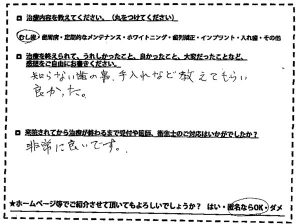 治療内容を教えてください。（丸をつけてください）
むし歯・歯周病・定期的なメンテナンス・ホワイトニング・歯列矯正・インプラント・入れ歯・その他
治療を終えられて、うれしかったこと、良かったこと、大変だったことなど、
感想をご自由にお書きください。
知らない歯の事、手入れなど教えてもらい
良かった。
来院されてから治療が終わるまで受付や医師、衛生士のご対応はいかがでしたか？
非常に良いです。
★ホームページ等でご紹介させて頂いてもよろしいでしょうか？ はい・匿名ならOK・ダメ